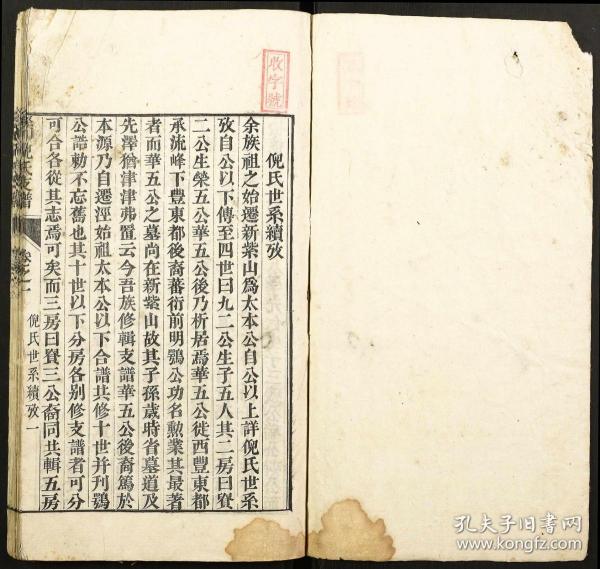 收字號
倪氏世系續攷
余族祖之始遷新紫山爲太本公自公以上詳倪氏世系
攷自公以下傳至四世曰九二公生子五人其二房曰賚
二公生榮五公華五公後乃析居焉華五公徙西豐東都
承流峰下豐東都後裔蕃衍前明鶚公功名勲業其最著
者而華五公之墓尚在新紫山故其子孫歲時省墓道及
先澤猶津津弗置云今吾族修輯支譜華五公後裔篤於
本源乃自遷涇始祖太本公以下合譜其修十世并刋鶚
公誥勅不忘舊也其十世以下分房各别修支譜者可分
可合各從其志焉可矣而三房曰賚三公裔同共輯五房
倪氏世系續攷一
孔夫子旧书网
www.kongfz.com